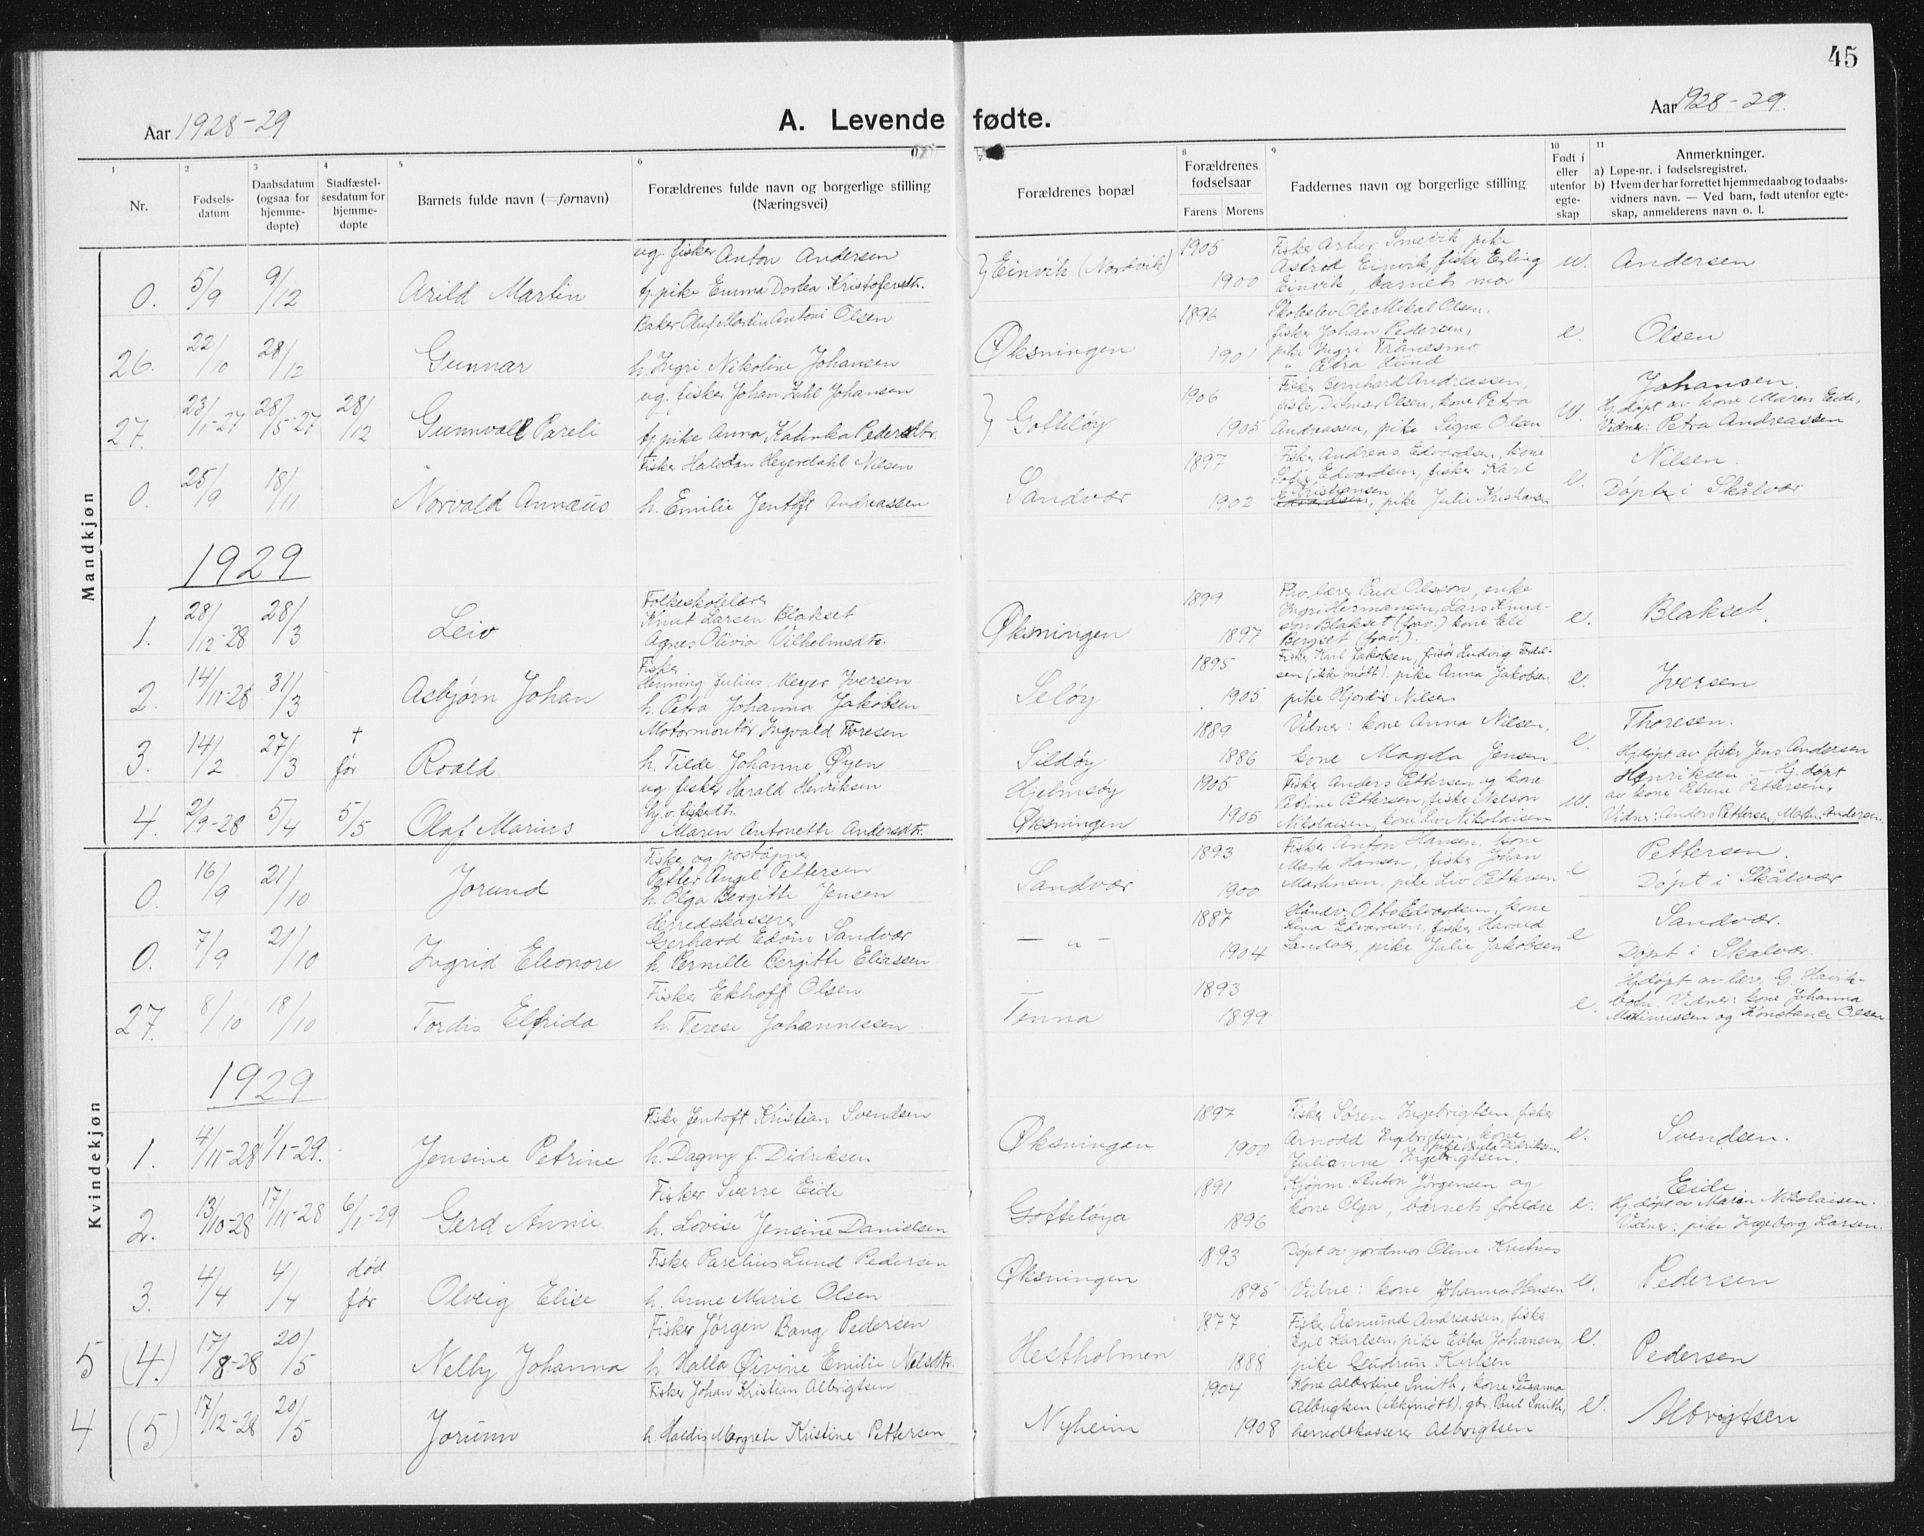 45
Aar 1928-29
A. Levende fødte.
Aar 1928-29.
1 2 3 4 5 6 7 8 9 10 11
Nr.
Fødsels-
datum
Daabsdatum
(ogsaa for
hjemme-
døpte)
Stadfæstel-
sesdatum for
hjemme-
døpte
Barnets fulde navn (=fornavn)
Forældrenes fulde navn og borgerlige stilling
(Næringsvei)
Forældrenes bopæl
Forældrenes
fødselsaar
Farens Morens
Faddernes navn og borgerlige stilling
Født i
eller
utenfor
egte-
skap
Anmerkninger.
a) Løpe-nr. i fødselsregistret.
b) Hvem der har forrettet hjemmedaab og to daabs-
vidners navn. — Ved barn, født utenfor egte-
skap, anmelderens navn o. l.
Mandkjøn
0. 5/9 9/12 Arild Martin
ug. fisker Anton Andersen
fj. pike Emma Dortea Kristofersdtr.
} Einvik (Nordvik)
1905
1900
Fisker Artur Smevik, pike
Astrid Einvik, fisker Erling
Einvik, barnets mor
u. Andersen
26. 22/10 28/12 Gunnar
Baker Oluf Martin Antoni Olsen
h. Ingri Nikoline Johansen
Øksningen
1896
1901
Skoleelev Ole Mikal Olsen,
fisker Johan Pedersen,
pike Ingri Trånesmo
" Petra Lund
e. Olsen
27. 23/1-27 28/5-27 28/12 Gunnvall Pareli
ug. fisker Johan Zahl Johansen
fj. pike Anna Katinka Pedersdtr.
} Gotteløy
1906
1905
Fisker Bernhard Andreassen,
fisker Ditmar Olsen, kone Petra
Andreassen, pike Signe Olsen
u. Johansen.
Hj. døpt av kone Maren Eide,
Vidner: Petra Andreassen
0. 25/9 18/11 Norvald Annæus
Fisker Halvdan Heyerdahl Nilsen
h. Emilie Jentoft Andreassen
Sandvær
1897
1902
Fisker Andreas Edvardsen, kone
Sofie Edvardsen, fisker Karl
Kristiansen
Edvardsen, pike Julie Kristiansen
e. Nilsen.
Døpt i Skålvær
1929
1. 28/12-28 28/3 Leiv
Folkeskolelærer
Knut Larsen Blakset
Agnes Olivia Vilhelmsdtr.
Øksningen
1899
1897
Phv. lærer Paul Olsson, enke
Ingri Hermansen, Lars Knud-
son Blakset (frav.) kone Eli
Bergset (frav.).
e. Blakset.
2. 14/11-28 31/3 Asbjørn Johan
Fisker
Henning Julius Meyer Iversen
h. Petra Johanna Jakobsen
Seløy
1895
1905
Fisker Karl Jakobsen, frisør Ludvig Edel-
sen (ikke møtt). pike Anna Jakobsen
pike Hjordis Nilsen
e. Iversen
3. 14/2 27/3 † før Roald
Motormontør Ingvald Toresen
h. Tilde Johanne Øyen
Sildøy
1889
1886
Vidner: kone Anna Nilsen,
kone Magda Jensen
e. Thoresen.
Hj. døpt av fisker Jens Andersen
4. 2/9-28 5/4 5/5 Olaf Marius
ug. fisker Harald Henriksen
hj. v. fiskerdtr.
Maren Antonette Andersdtr.
Hjelmsøy
Øksningen
1905
1905
Fisker Anders Pettersen og kone
Petrine Pettersen, fisker Nelson
Nikolaisen, kone Liv Nikolaisen
u. Henriksen — Hj. døpt
av kone Petrine Pettersen,
Vidner: Anders Pettersen, Martin Andersen.
Kvindekjøn
0. 16/9 21/10 Jorund
Fisker og poståpner
Petter Angel Pettersen
h. Olga Bergitte Jensen
Sandvær
1893
1900
Fisker Anton Hansen, kone
Marta Hansen, fisker Johan
Martinsen, pike Liv Pettersen
e Pettersen.
Døpt i Skålvær
0. 7/9 21/10 Ingrid Eleonore
Herredskasserer
Gerhard Edvin Sandvær
h. Pernille Bergitte Eliassen
— " —
1887
1904
Håndv. Otto Edvardsen, kone
Lina Edvardsen, fisker Harald
Sandvær, pike Julie Jakobsen
e Sandvær.
Døpt i Skålvær.
27. 8/10 18/10 Tordis Elfrida
Fisker Ekhoff Olsen
h. Terese Johannessen
Tenna
1893
1899
e. Hj. døpt av lær. G. Havik-
botn. Vidner: kone Johanna
og Konstance Olsen
1929
1. 4/11-28 1/1-29. Jensine Petrine
Fisker Jentoft Kristian Svendsen
h. Dagny f. Didriksen
Øksningen
1897
1900
Fisker Søren Ingebrigtsen, fisker
Arnodd Ingebrigtsen, kone
pike Paula Didriksen.
Julianne Ingebrigtsen.
e. Svendsen.
2. 13/10-28 17/11-28 6/1-29 Gerd Annie
Fisker Sverre Eide
h. Lovise Jensine Danielsen
Gotteløya
1891
1896
Kjøpm. Anton Jørgensen og
kone Olga, barnets foreldre
e. Eide
Hj. døpt av Maren Nikolaisen.
Vidner: pike Ingeborg Larsen.
3. 4/4 4/4 død før Olveig Elise
Fisker Parelius Lund Pedersen
h. Anne Marie Olsen
Øksningen
1893
1895
Døpt av jordmor Oline Knutsen
Vidne: kone Johanna Hansen
e. Pedersen
5 (4.) 17/8-28 20/5 Nelly Johanna
Fisker Jørgen Bang Pedersen
h. Halla Øivine Emilie Nelsdtr.
Hestholmen
1877
1888
Fisker Åsmund Andreassen, fisker
Egil Karlsen, pike Ebba Johansen,
pike Gudrun Karlsen
e. Pedersen
4 (5) 17/12-28 20/5 Jorunn
Fisker Johan Kristian Albrigtsen
h. Haldis Margrete Kristine Pettersen
Nyheim
1904
1908
Kone Albertine Smith, kone Susanna
Albrigtsen (ikke møtt), gbr. Paul Smith,
herredskasserer Albrigtsen
e. Albrigtsen